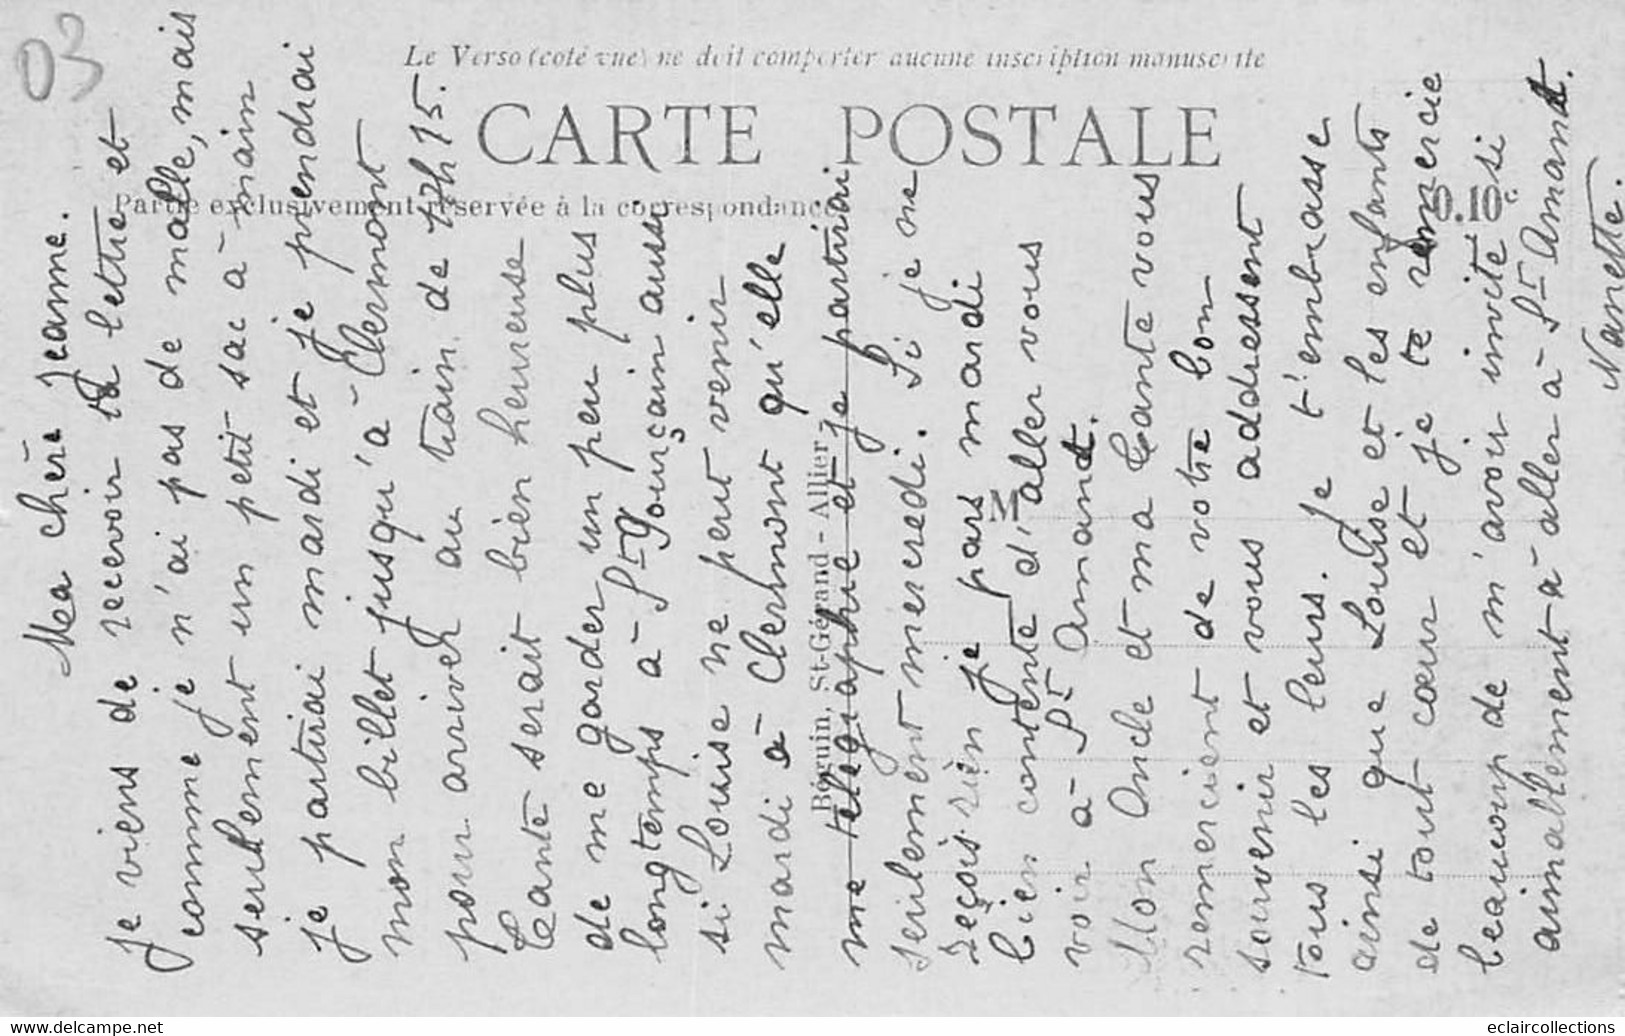 03
Le Verso (coté vue) ne doit comporter aucune inscription manuscrite
CARTE POSTALE
Partie exclusivement réservée à la correspondance
0.10c
M
Béguin, St-Gérand - Allier
Ma chère Jeanne.
je viens de recevoir ta lettre et
comme je n'ai pas de malle, mais
seulement un petit sac à main
je partirai mardi et je prendrai
mon billet jusqu'à Clermont
pour arriver au train de 17h 15.
Tante serait bien heureuse
de me garder un peu plus
longtemps à St Pourçain aussi
si Louise ne peut venir
mardi à Clermont qu'elle
me télégraphie et je partirai
seulement mercredi. Si je ne
reçois rien je pars mardi
bien contente d'aller vous
voir à St Amand.
Mon Oncle et ma Tante vous
remercient de votre bon
souvenir et vous addressent
tous les leurs. Je t'embrasse
ainsi que Louise et les enfants
de tout cœur et je te remercie
beaucoup de m'avoir invité si
aimablement à aller à St Amand.
Nanette.
www.delcampe.net
eclaircollections